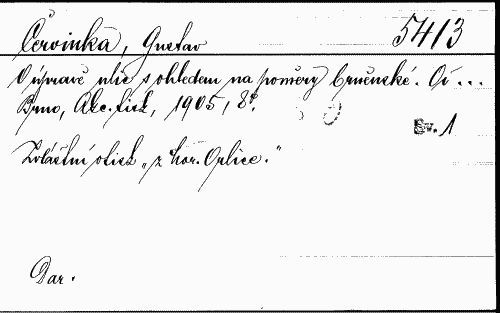 Červinka, Gustav 5413
O úpravě ulic s ohledem na poměry brněnské. Od ...
Brno, Akc. tisk, 1905, 8°.
Sv. 1
Zvláštní otisk „z hor. Orlice.“
Dar.